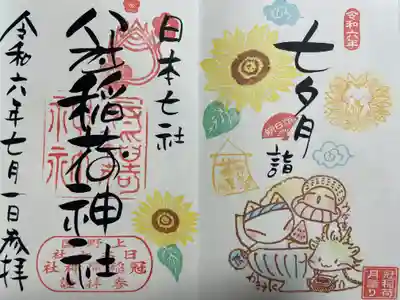 令和六年
七夕月
詣
冠稲荷
月詣り
日本七社
冠稲荷神社
令和六年七月一日参拝